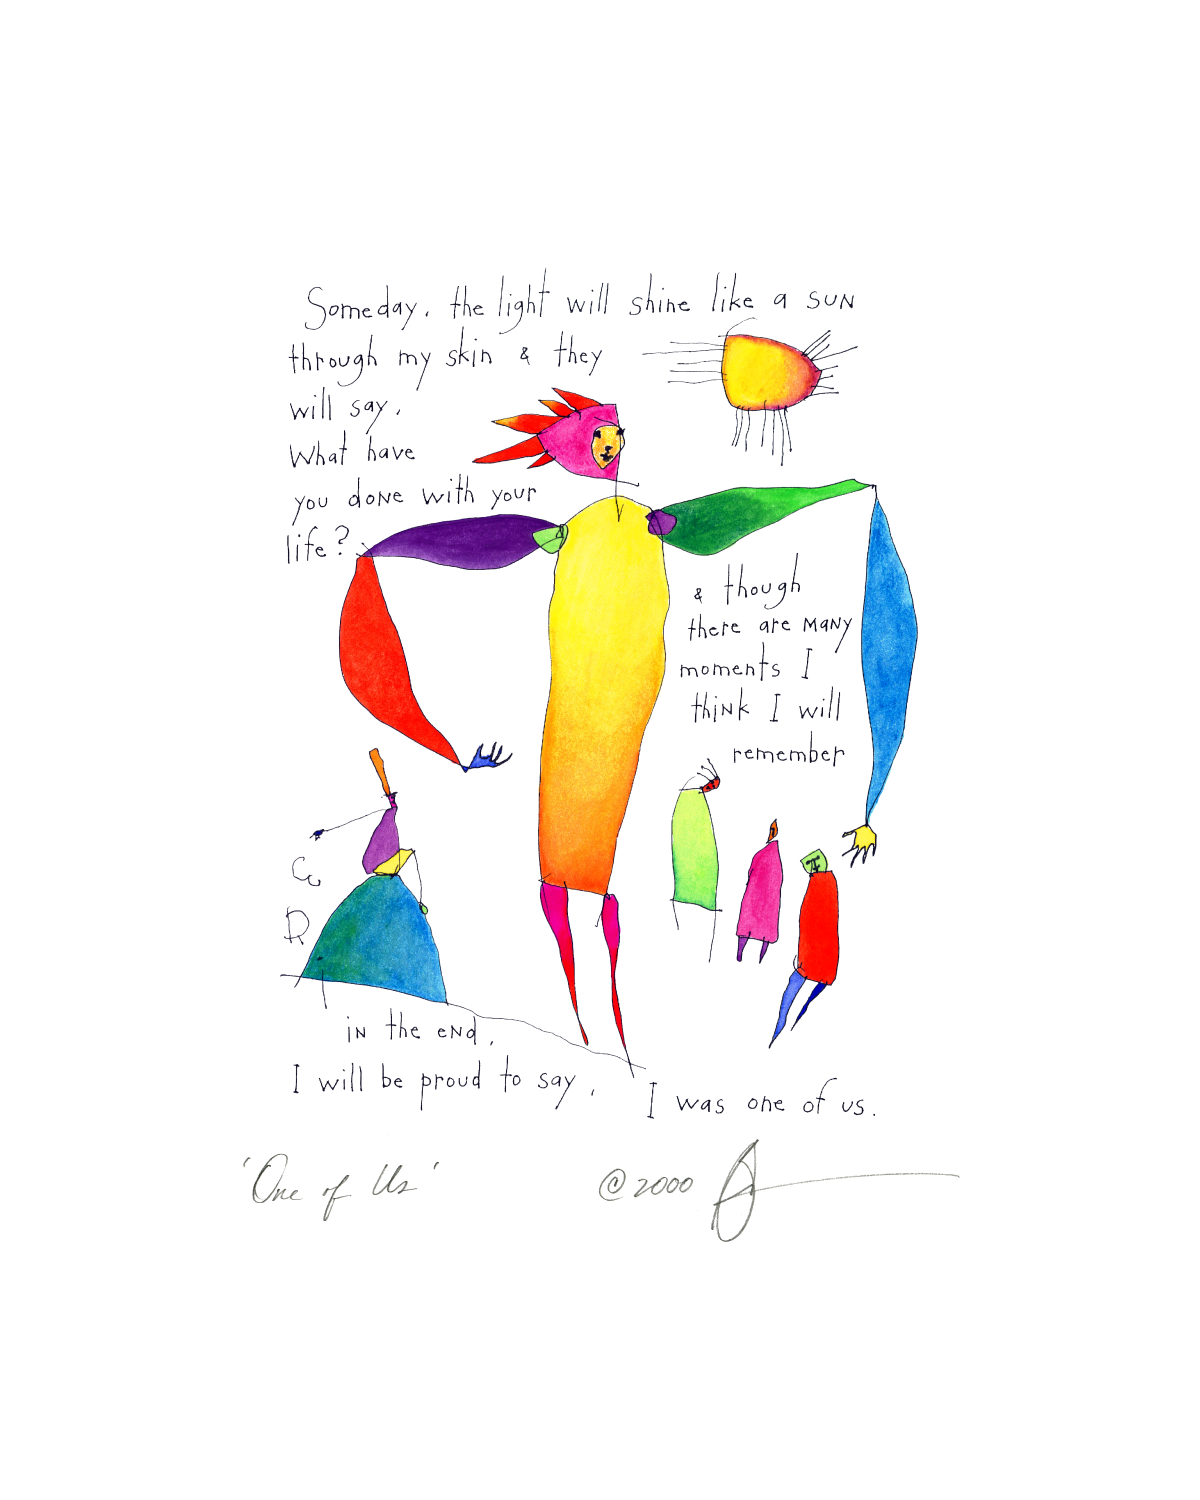 Someday, the light will shine like a sun
through my skin & they
will say,
What have
you done with your
life?
& though
there are many
moments I
think I will
remember
in the end,
I will be proud to say,
I was one of us.
'One of Us'
©2000